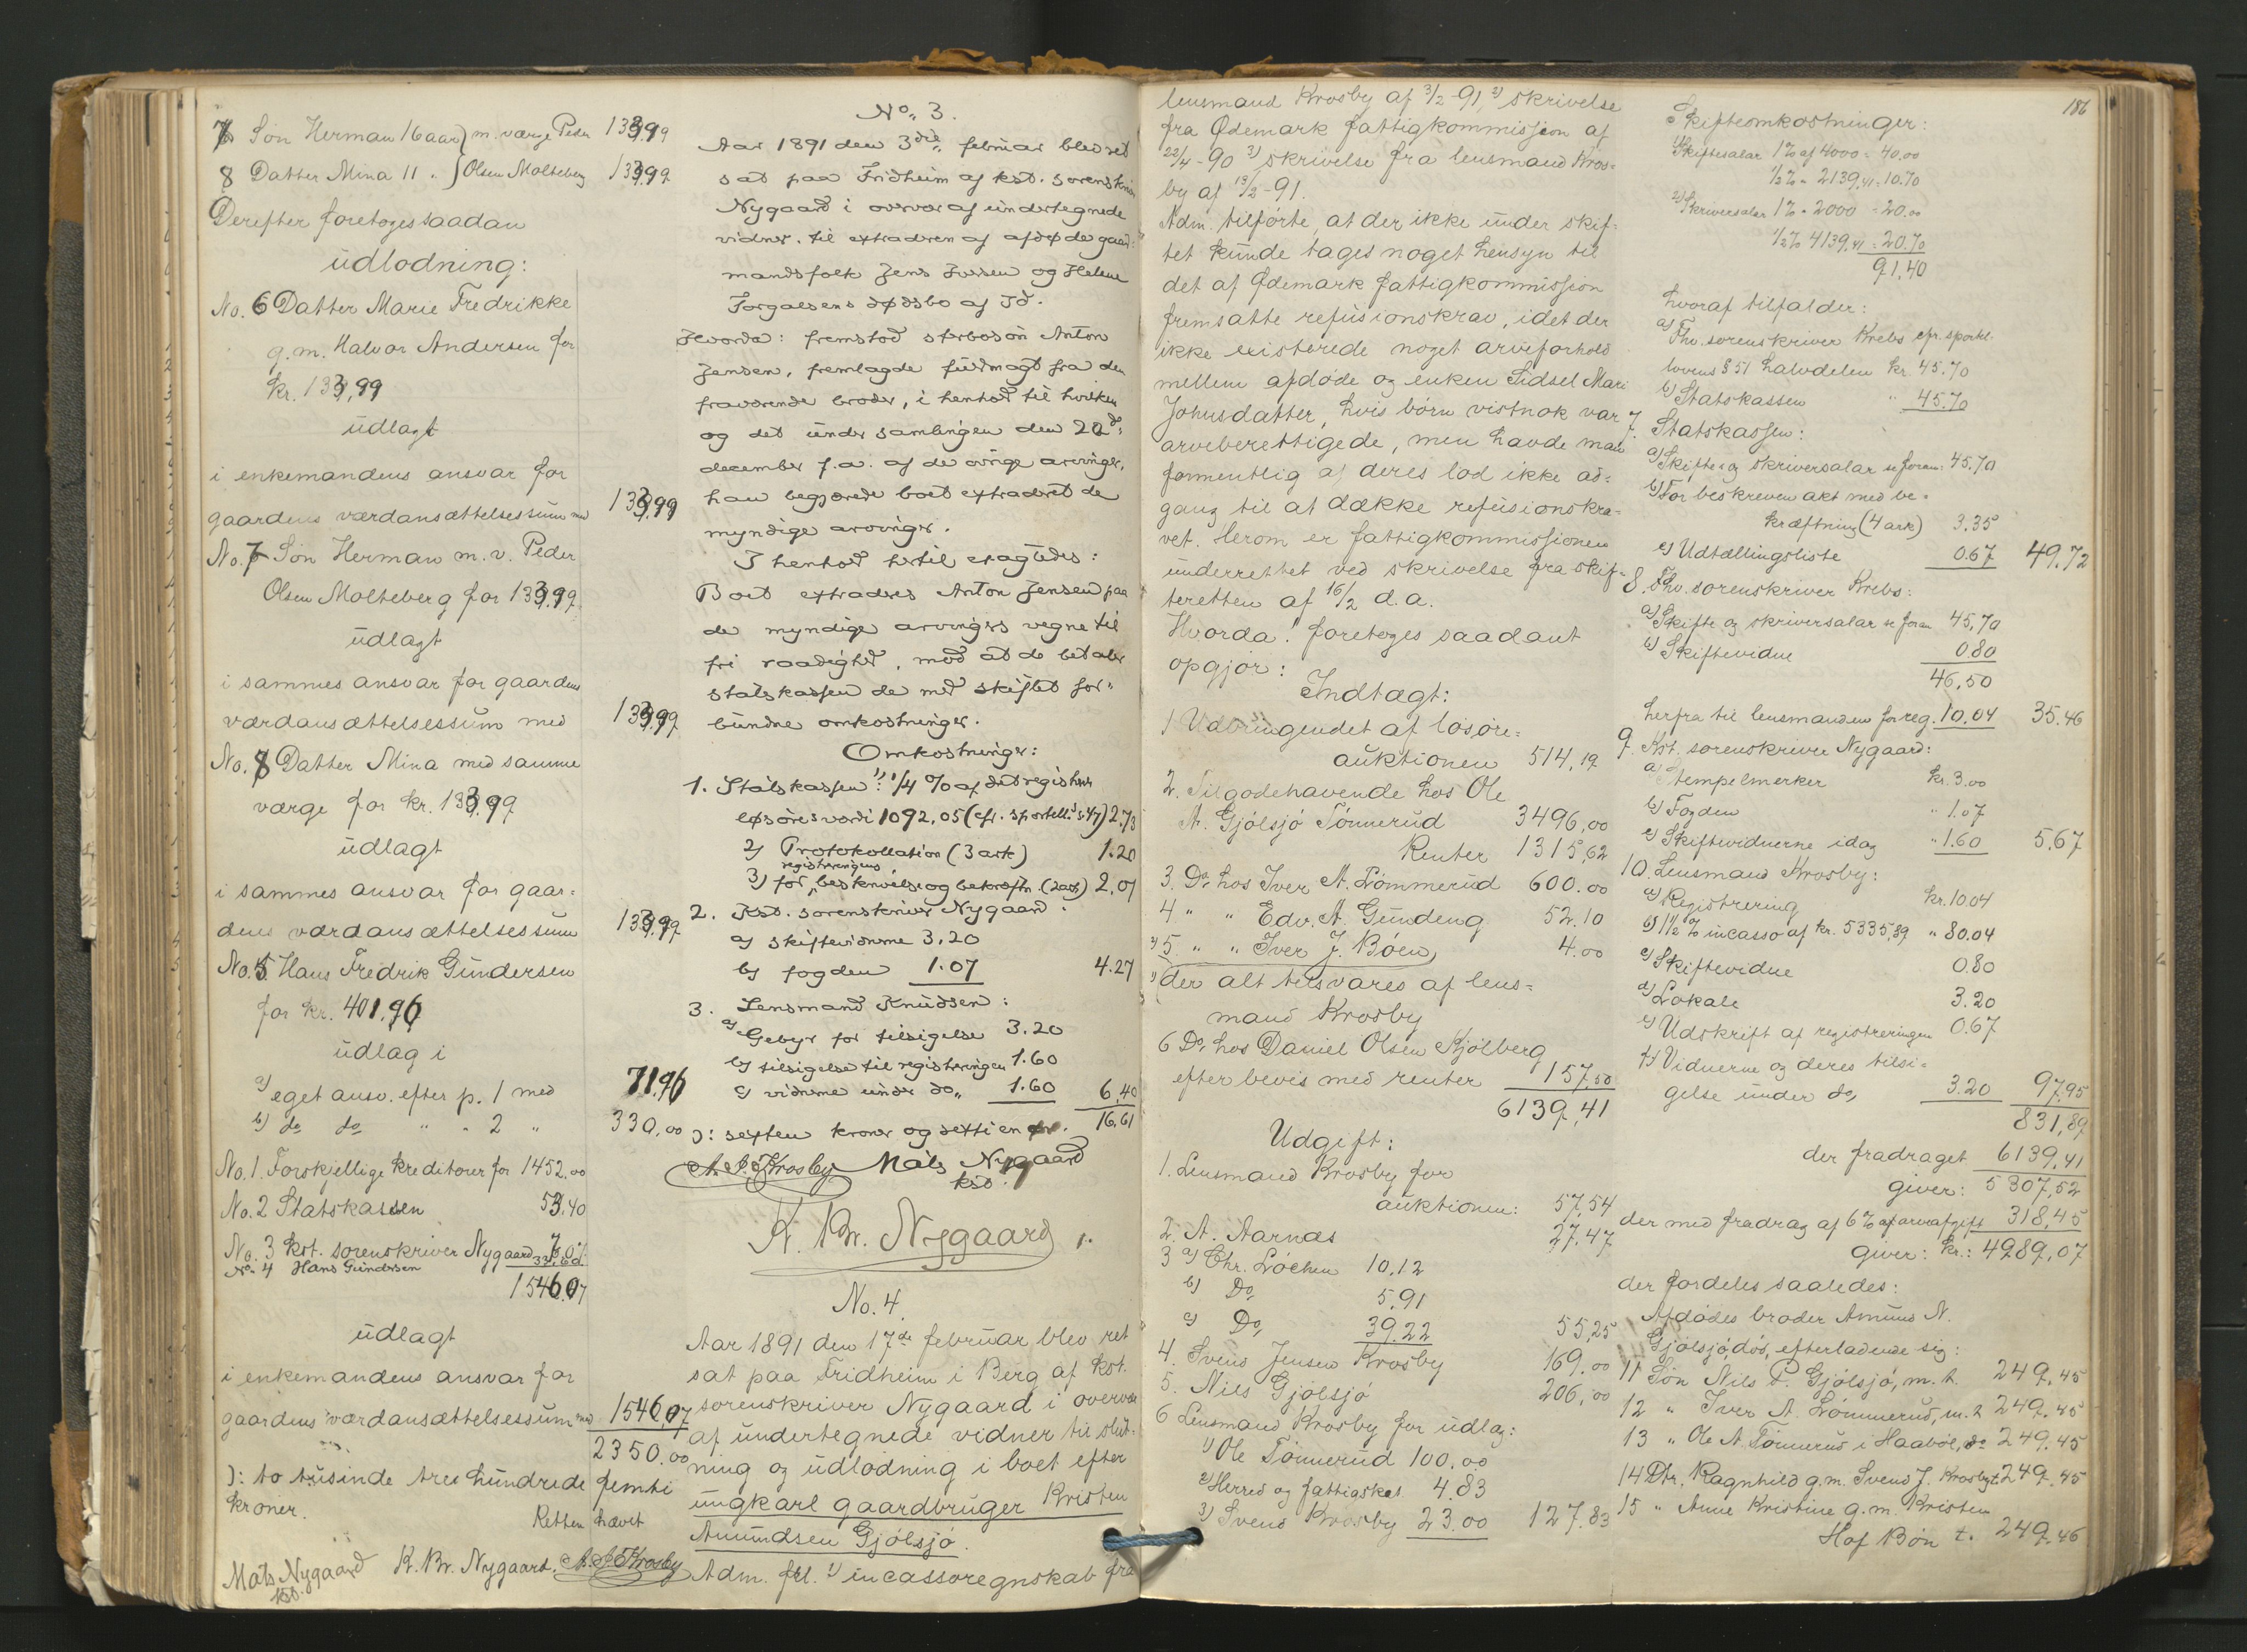 7 Søn Herman 16 aar } m. værge Peder 133,99
8 Datter Mina 11 " } Olsen Molteberg 133,99
Derefter foretoges saadan
udlodning:
No. 6 Datter Marie Fredrikke
g.m. Halvor Andersen for
kr. 133,99
udlagt
i enkemandens ansvar for
gaardens værdansættelsessum med 133,99
No. 7 Søn Herman m. v. Peder
Olsen Molteberg for 133,99
udlagt
i sammes ansvar for gaardens
værdansættelsessum med 133,99
No. 8 Datter Mina med samme
værge for kr. 133,99
udlagt
i sammes ansvar for gaar=
dens værdansættelsessum 133,99
No. 5 Hans Fredrik Gundersen
for kr. 401,96
udlag i
a) eget ansv. efter p. 1 med 71.96
b) do do " " 2 " 330,00
No. 1. Forskjellige kreditorer for 1452.00
No. 2 Statskassen 53.40
No. 3 kst. sorenskriver Nygaard 7.07
No. 4 Hans Gundersen 33.60
1546.07
udlagt
i enkemandens ansvar for
gaardens værdansættelsessum med 1546,07
2350.00
ɔ: to tusinde tre hundrede femti
kroner.
Retten hævet
Mats Nygaard K. Br. Nygaard. A. J. Krosby
kst.
No. 3.
Aar 1891 den 3die februar blev ret
sat paa Fridheim af kst. sorenskriver
Nygaard i overvær af undertegnede
vidner til extradition af afdøde gaard=
mandsfolk Jens Jussen og Helene
Torgalsens dødsbo af Id.
Hvorda: fremstod sterbosøn Anton
Jensen, fremlagde fuldmagt fra den
fraværende broder, i henhold til hvilken
og det under samlingen den 20de
december f.a. af de øvrige arvinger,
han begjærede boet extraderet de
myndige arvinger.
I henhold hertil eragtedes:
Boet extraderes Anton Jensen paa
de myndige arvingers vegne til
fri raadighed, mod at de betaler
statskassen de med skiftet for=
bundne omkostninger.
Omkostninger:
1. Statskassen: 1) 1/4 % af det registrerte
løsøres værdi 1092,05 (cfr. sportell. § 47) 2.73
2) Protokollation (3 ark) 1.20
3) for registreringens beskrivelse og bekræftn. (2 ark) 2,01
2. Kst. sorenskriver Nygaard:
a) skiftevidnerne 3,20
b) fogden 1.07 4.27
3. Lensmand Knudsen:
a) Gebyr for tilsigelse 3.20
b) tilsigelse til registreringen 1.60
c) vidnerne under do. 1.60 6,40
ɔ: sexten kroner og sexti en øre. 16,61
A. J. Krosby Mats Nygaard
kst.
K. Br. Nygaard
No. 4.
Aar 1891 den 17de februar blev ret
sat paa Fridheim i Berg af kst.
sorenskriver Nygaard i overvær
af undertegnede vidner til slut=
ning og udlodning i boet efter
ungkarl gaardbruger Kristen
Amundsen Gjølsjø.
Adm. frl. 1) incassoregnskab fra
lensmand Krosby af 3/2-91, 2) skrivelse
fra Ødemark fattigkommission af
22/4-90 3) skrivelse fra lensmand Kros=
by af 13/2-91.
Adm. tilførte, at der ikke under skif=
tet kunde tages noget hensyn til
det af Ødemark fattigkommission
fremsatte refusionskrav, idet der
ikke existerede noget arveforhold
mellem afdøde og enken Sidsel Mari
Johnsdatter, hvis børn vistnok var
arveberettigede, men havde man
formentlig af deres lod ikke ad=
gang til at dække refusionskra=
vet. Herom er fattigkommissionen
underrettet ved skrivelse fra skif=
teretten af 16/2 d.a.
Hvorda foretoges saadant
opgjør:
Indtægt:
1 Udbringendet af løsøre=
auktionen 514,19
2. Tilgodehavende hos Ole
A. Gjølsjø Tømmerud 3496,00
Renter 1315,62
3. Do. hos Iver A. Lømmerud 600.00
4 " " Edv. A. Gundeng 52.10
5. " " Iver J. Bøen 4.00
der alt tilsvares af lens=
mand Krosby
6 Do. hos Daniel Olsen Kjølberg
efter bevis med renter 157,50
6139,41
Udgift:
1. Lensmand Krosby for
auktionen: 57,54
2. A. Aarnæs 27.47
3 a) Chr. Løchen 10,12
b) Do. 5,91
c) Do. 39.22 55,25
4. Svend Jensen Krosby 169.00
5. Nils Gjølsjø 206,00
6 Lensmand Krosby for udlæg:
1) Ole Tømmerud 100.00
2) Herred og fattigskat 4.83
3) Svend Krosby 23.00 127.83
186
Skifteomkostninger:
1) Skiftesalær 1% af 4000 = 40,00
1/2 % " 2139,41 = 10.70
2) Skriversalær 1% " 2000 = 20.00
1/2 % 4139,41 = 20.70
91,40
hvoraf tilfalder:
a) Fhv. sorenskriver Krebs efr. sportel.
lovens § 51 halvdelen kr. 45.70
b) Statskassen " 45.70
7. Statskassen:
a) Skifte og skriversalær se foran: 45.70
b) For beskreven akt med be=
kræftning (4 ark) 3.35
c) Udtællingsliste 0.67 49.72
8. Fhv. sorenskriver Krebs:
a) Skifte og skriversalær se foran 45,70
b) Skiftevidne 0.80
46,50
herfra til lensmanden for reg. 10.04 35.46
9. Kst. sorenskriver Nygaard:
a) Stempelmerker kr. 3.00
b) Fogden " 1.07
c) Skiftevidnerne idag " 1.60 5.67
10. Lensmand Krosby:
a) Registrering kr. 10.04
b) 1 1/2 % incasso af kr. 5335,89 " 80.04
c) Skiftevidne 0.80
d) Lokale 3.20
e) Udskrift af registreringen 0.67
f) Vidnerne og deres tilsi=
gelse under do. 3.20 97,95
831,89
der fradraget 6139,41
giver: 5307,52
der med fradrag af 6% af arveafgift 318,45
giver: kr.: 4989,07
der fordeles saaledes:
Afdødes broder Amund N.
Gjølsjø, død, efterladende sig:
11 Søn Nils A. Gjølsjø, m. t. 249,45
12 " Iver A. Lømmerud, m. t. 249.45
13 " Ole A. Tømmerud i Haabøl, do 249.45
14 Dtr. Ragnhild g.m. Svend J. Krosby t. 249.45
15 " Anne Kristine g.m. Kristen
Hof Bøn t. 249.46